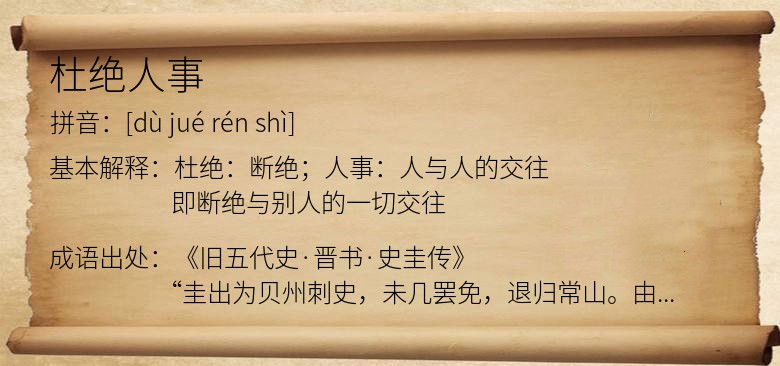 杜绝人事
拼音：[dù jué rén shì]
基本解释：杜绝：断绝；人事：人与人的交往
即断绝与别人的一切交往
成语出处：《旧五代史·晋书·史圭传》
“圭出为贝州刺史，未几罢免，退归常山。由...